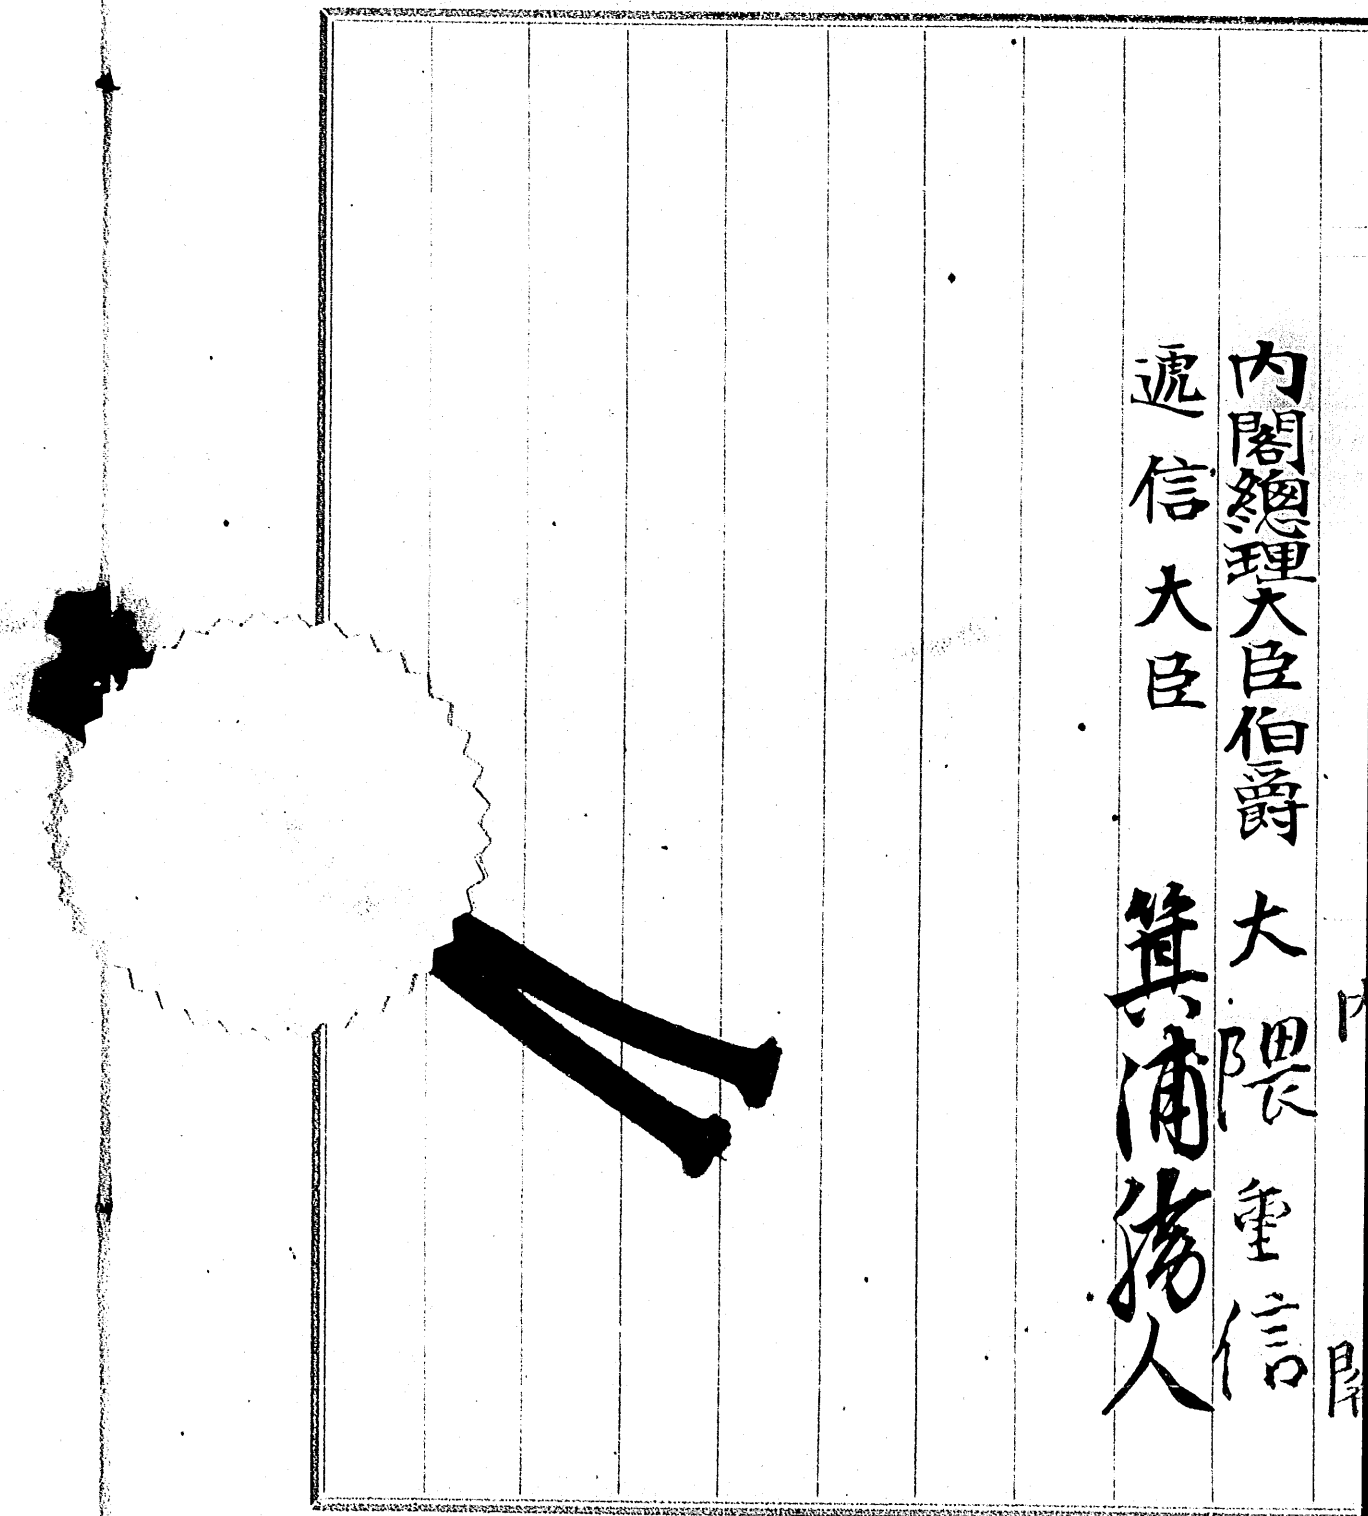 内閣
內閣總理大臣伯爵 大隈重信
遞信大臣 箕浦勝人